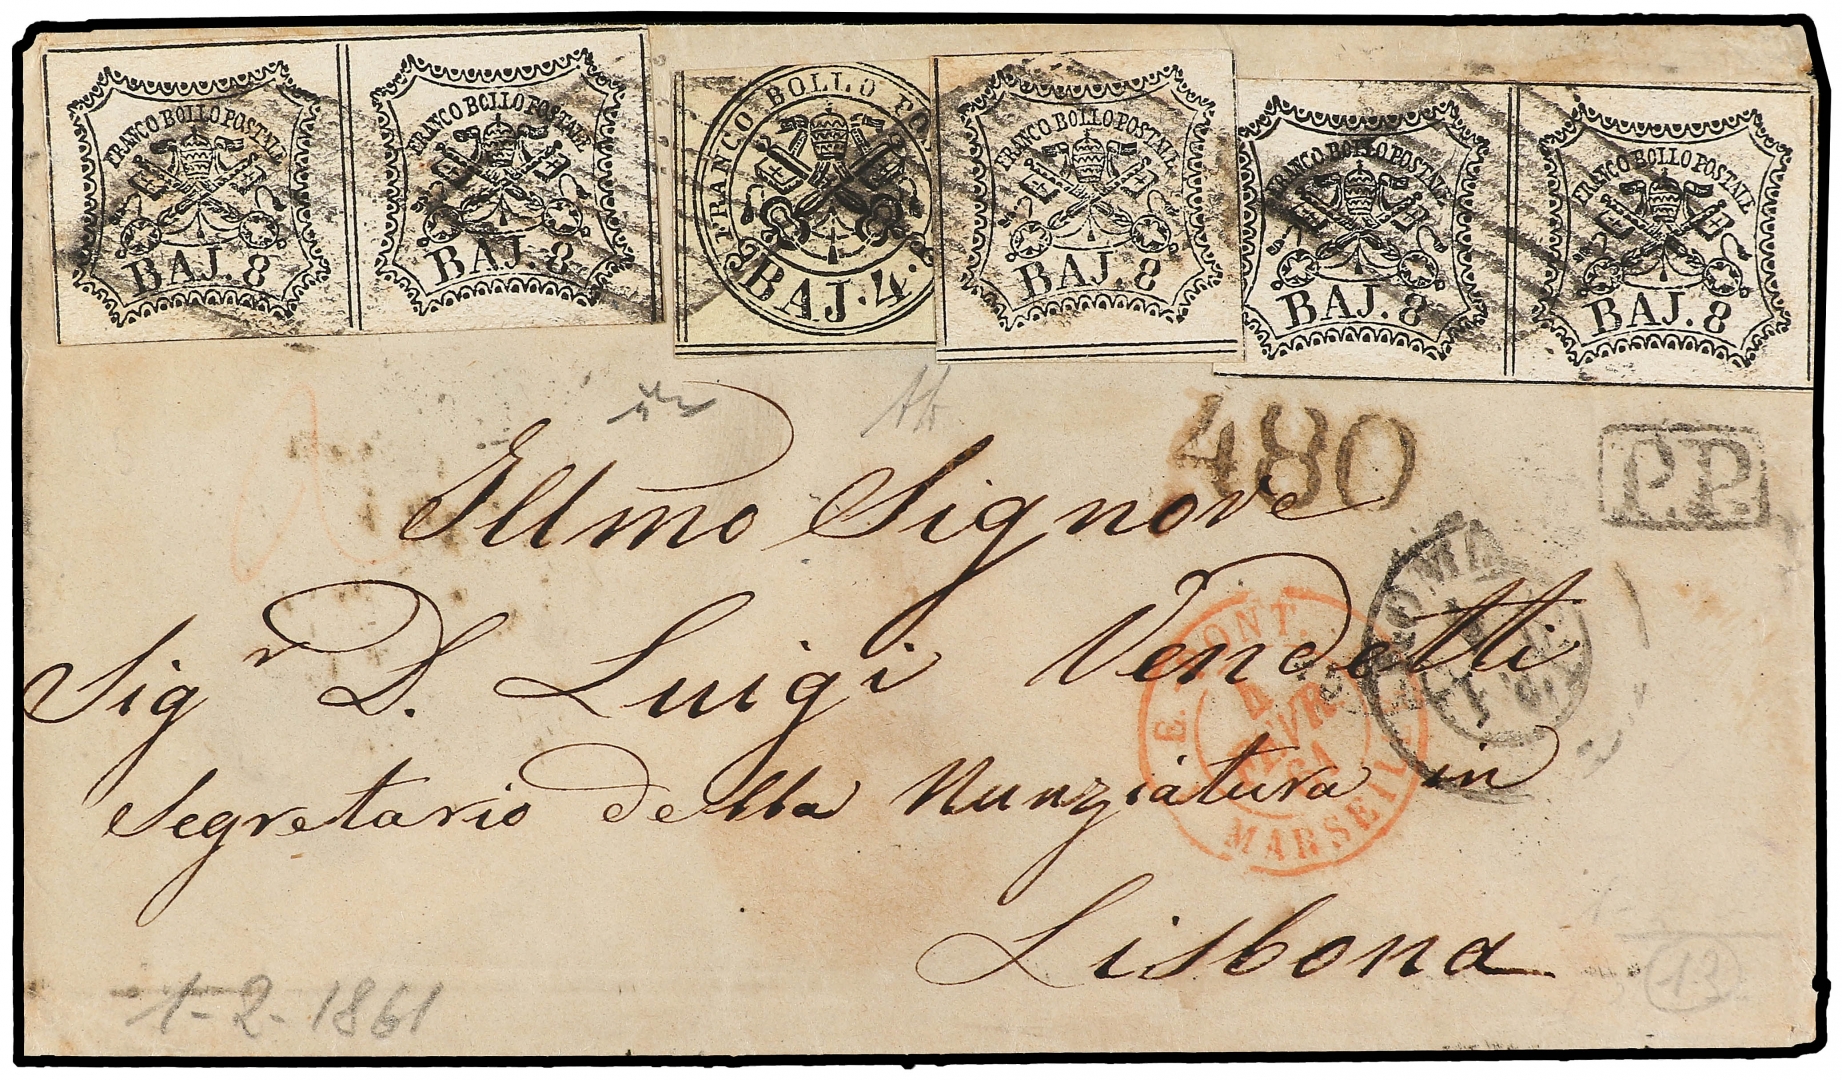 FRANCO BOLLO POSTALE
BAJ. 8
FRANCO BOLLO POSTALE
BAJ. 8
FRANCO BOLLO POS
BAJ. 4.
FRANCO BOLLO POSTALE
BAJ. 8
FRANCO BOLLO POSTALE
BAJ. 8
FRANCO BOLLO POSTALE
BAJ. 8
480
P.P.
Illmo Signore
ROMA
Sigr D. Luigi Vendetti
E. PONT.
4
FEVR.
61
MARSEILLE
Segretario della Nunziatura in
Lisbona
1-2-1861
13